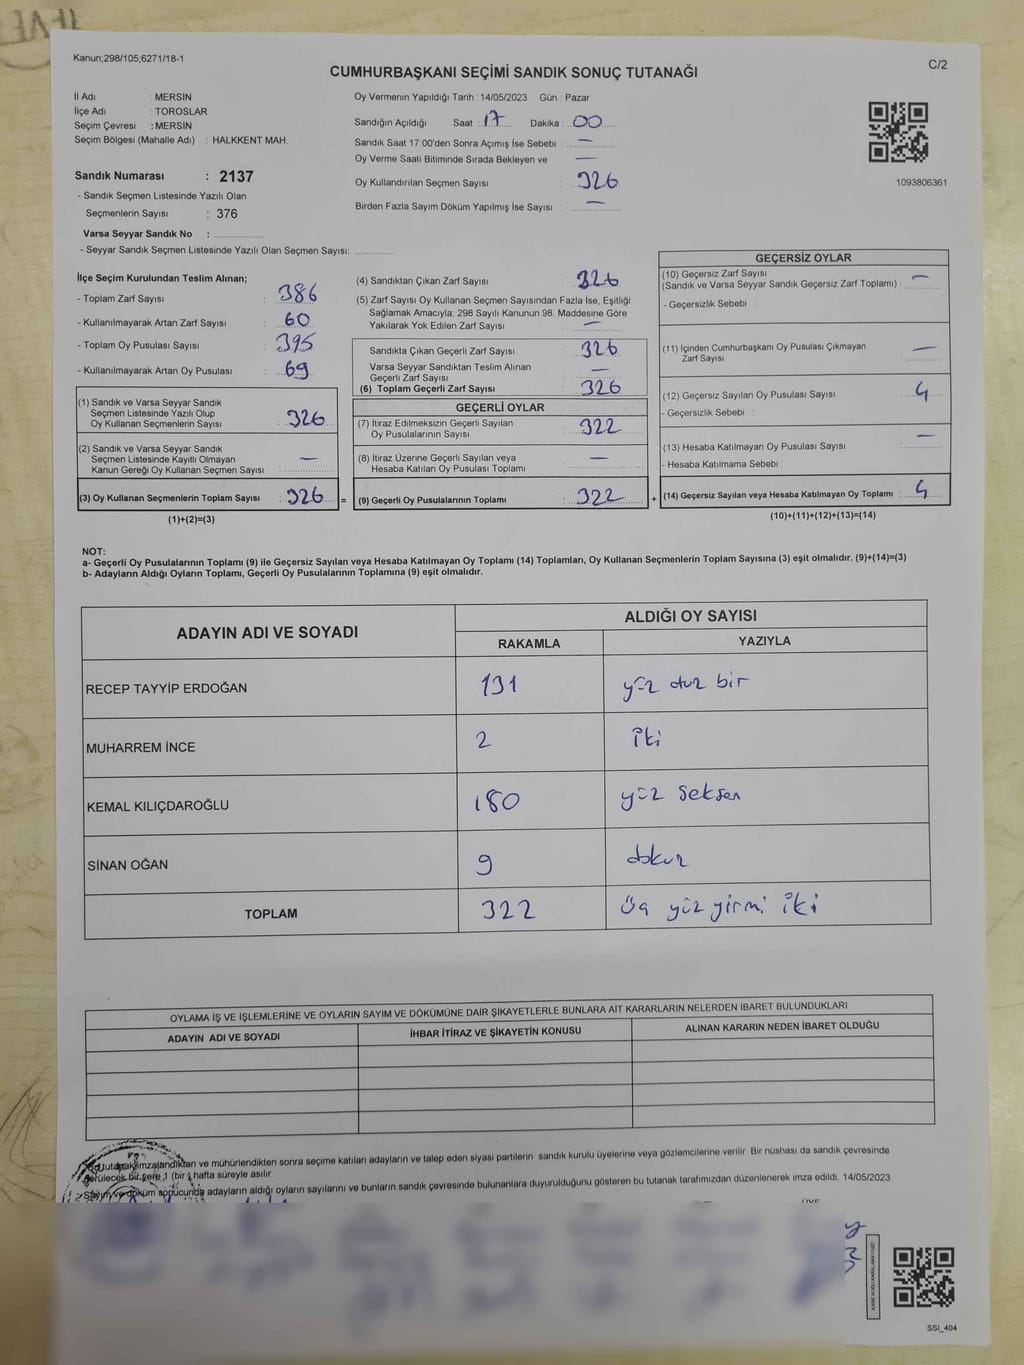 Kanun;298/105;6271/18-1
C/2
CUMHURBAŞKANI SEÇİMİ SANDIK SONUÇ TUTANAĞI
İl Adı : MERSİN
İlçe Adı : TOROSLAR
Seçim Çevresi : MERSİN
Seçim Bölgesi (Mahalle Adı) : HALKKENT MAH.
Sandık Numarası : 2137
- Sandık Seçmen Listesinde Yazılı Olan
Seçmenlerin Sayısı : 376
Varsa Seyyar Sandık No : ................
- Seyyar Sandık Seçmen Listesinde Yazılı Olan Seçmen Sayısı: ..............
Oy Vermenin Yapıldığı Tarih : 14/05/2023 Gün : Pazar
Sandığın Açıldığı Saat : 17 Dakika : 00
Sandık Saat 17:00'den Sonra Açımış İse Sebebi : —
Oy Verme Saati Bitiminde Sırada Bekleyen ve —
Oy Kullandırılan Seçmen Sayısı : 326
Birden Fazla Sayım Döküm Yapılmış İse Sayısı : —
1093806361
İlçe Seçim Kurulundan Teslim Alınan;
- Toplam Zarf Sayısı : 386
- Kullanılmayarak Artan Zarf Sayısı : 60
- Toplam Oy Pusulası Sayısı : 395
- Kullanılmayarak Artan Oy Pusulası : 69
(1) Sandık ve Varsa Seyyar Sandık
Seçmen Listesinde Yazılı Olup
Oy Kullanan Seçmenlerin Sayısı : 326
(2) Sandık ve Varsa Seyyar Sandık
Seçmen Listesinde Kayıtlı Olmayan
Kanun Gereği Oy Kullanan Seçmen Sayısı : —
(3) Oy Kullanan Seçmenlerin Toplam Sayısı : 326 =
(1)+(2)=(3)
(4) Sandıktan Çıkan Zarf Sayısı : 326
(5) Zarf Sayısı Oy Kullanan Seçmen Sayısından Fazla İse, Eşitliği
Sağlamak Amacıyla; 298 Sayılı Kanunun 98. Maddesine Göre
Yakılarak Yok Edilen Zarf Sayısı : —
Sandıkta Çıkan Geçerli Zarf Sayısı : 326
Varsa Seyyar Sandıktan Teslim Alınan
Geçerli Zarf Sayısı : —
(6) Toplam Geçerli Zarf Sayısı : 326
GEÇERLİ OYLAR
(7) İtiraz Edilmeksizin Geçerli Sayılan
Oy Pusulalarının Sayısı : 322
(8) İtiraz Üzerine Geçerli Sayılan veya
Hesaba Katılan Oy Pusulası Toplamı : —
(9) Geçerli Oy Pusulalarının Toplamı : 322 +
GEÇERSİZ OYLAR
(10) Geçersiz Zarf Sayısı
(Sandık ve Varsa Seyyar Sandık Geçersiz Zarf Toplamı) : —
- Geçersizlik Sebebi :
(11) İçinden Cumhurbaşkanı Oy Pusulası Çıkmayan
Zarf Sayısı : —
(12) Geçersiz Sayılan Oy Pusulası Sayısı : 4
- Geçersizlik Sebebi :
(13) Hesaba Katılmayan Oy Pusulası Sayısı : —
- Hesaba Katılmama Sebebi :
(14) Geçersiz Sayılan veya Hesaba Katılmayan Oy Toplamı : 4
(10)+(11)+(12)+(13)=(14)
NOT:
a- Geçerli Oy Pusulalarının Toplamı (9) ile Geçersiz Sayılan veya Hesaba Katılmayan Oy Toplamı (14) Toplamları, Oy Kullanan Seçmenlerin Toplam Sayısına (3) eşit olmalıdır. (9)+(14)=(3)
b- Adayların Aldığı Oyların Toplamı, Geçerli Oy Pusulalarının Toplamına (9) eşit olmalıdır.
ADAYIN ADI VE SOYADI
ALDIĞI OY SAYISI
RAKAMLA YAZIYLA
RECEP TAYYİP ERDOĞAN 131 yüz otuz bir
MUHARREM İNCE 2 iki
KEMAL KILIÇDAROĞLU 180 yüz seksen
SİNAN OĞAN 9 dokuz
TOPLAM 322 Üç yüz yirmi iki
OYLAMA İŞ VE İŞLEMLERİNE VE OYLARIN SAYIM VE DÖKÜMÜNE DAİR ŞİKAYETLERLE BUNLARA AİT KARARLARIN NELERDEN İBARET BULUNDUKLARI
ADAYIN ADI VE SOYADI İHBAR İTİRAZ VE ŞİKAYETİN KONUSU ALINAN KARARIN NEDEN İBARET OLDUĞU
tutanak imzalandıktan ve mühürlendikten sonra seçime katılan adayların ve talep eden siyasi partilerin sandık kurulu üyelerine veya gözlemcilerine verilir Bir nüshası da sandık çevresinde
görülecek bir yere 1 (bir) hafta süreyle asılır.
Sayım ve döküm sonucunda adayların aldığı oyların sayılarını ve bunların sandık çevresinde bulunanlara duyurulduğunu gösteren bu tutanak tarafımızdan düzenlenerek imza edildi. 14/05/2023
KARE KODU KARALAMAYINIZ!
SSI_404